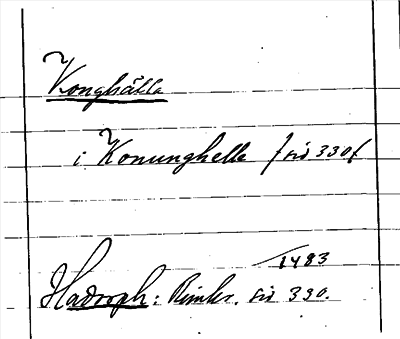 Konghälla
i Konunghella / sid 330 /
1483
Hadorph: Rimkr. sid 330.